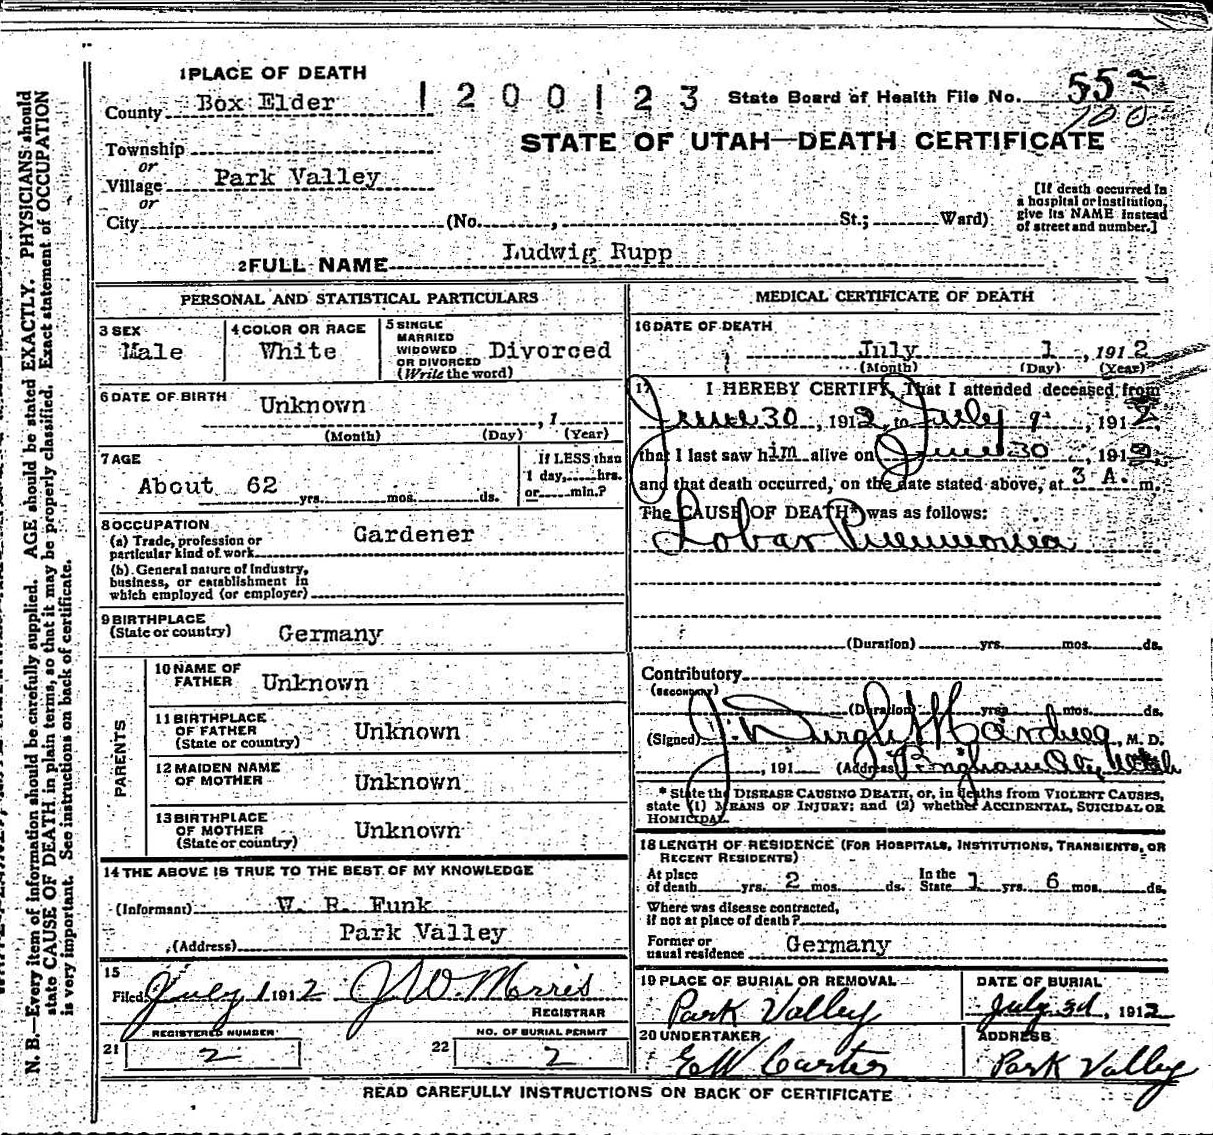 1 PLACE OF DEATH
County Box Elder
1200123
State Board of Health File No. 55
STATE OF UTAH—DEATH CERTIFICATE
Township
or
Village Park Valley
or
City (No. , St.; Ward)
[If death occurred in
a hospital or institution,
give its NAME instead
of street and number.]
2 FULL NAME Ludwig Rupp
PERSONAL AND STATISTICAL PARTICULARS
3 SEX
Male
4 COLOR OR RACE
White
5 SINGLE
MARRIED
WIDOWED
OR DIVORCED
(Write the word)
Divorced
6 DATE OF BIRTH
Unknown , 1
(Month) (Day) (Year)
7 AGE
About 62 yrs. mos. ds.
If LESS than
1 day, hrs.
or min.?
8 OCCUPATION
(a) Trade, profession or
particular kind of work
Gardener
(b) General nature of Industry,
business, or establishment in
which employed (or employer)
9 BIRTHPLACE
(State or country) Germany
PARENTS
10 NAME OF
FATHER Unknown
11 BIRTHPLACE
OF FATHER
(State or country)
Unknown
12 MAIDEN NAME
OF MOTHER
Unknown
13 BIRTHPLACE
OF MOTHER
(State or country)
Unknown
14 THE ABOVE IS TRUE TO THE BEST OF MY KNOWLEDGE
(Informant) W. R. Funk
(Address) Park Valley
15
Filed July 1 1912 J W. Morris
REGISTRAR
REGISTERED NUMBER
21 2
NO. OF BURIAL PERMIT
22 2
MEDICAL CERTIFICATE OF DEATH
16 DATE OF DEATH
July 1 , 1912
(Month) (Day) (Year)
17 I HEREBY CERTIFY, That I attended deceased from
June 30 , 1912, to July , 1912
that I last saw him alive on June 30 , 1912,
and that death occurred, on the date stated above, at 3 A. m.
The CAUSE OF DEATH* was as follows:
Lobar Pneumonia
(Duration) yrs. mos. ds.
Contributory
(SECONDARY)
(Duration) yrs. mos. ds.
(Signed) J. , M. D.
, 191 (Address)
* State the DISEASE CAUSING DEATH, or, in deaths from VIOLENT CAUSES,
state (1) MEANS OF INJURY; and (2) whether ACCIDENTAL, SUICIDAL OR
HOMICIDAL.
18 LENGTH OF RESIDENCE (FOR HOSPITALS, INSTITUTIONS, TRANSIENTS, OR
RECENT RESIDENTS)
At place
of death yrs. 2 mos. ds.
In the
State 1 yrs 6 mos. ds.
Where was disease contracted,
if not at place of death?
Former or
usual residence Germany
19 PLACE OF BURIAL OR REMOVAL
Park Valley
DATE OF BURIAL
July 3d , 1912
20 UNDERTAKER
E W Carter
ADDRESS
Park Valley
READ CAREFULLY INSTRUCTIONS ON BACK OF CERTIFICATE
N. B.—Every item of information should be carefully supplied. AGE should be stated EXACTLY. PHYSICIANS should
state CAUSE OF DEATH in plain terms, so that it may be properly classified. Exact statement of OCCUPATION
is very important. See instructions on back of certificate.